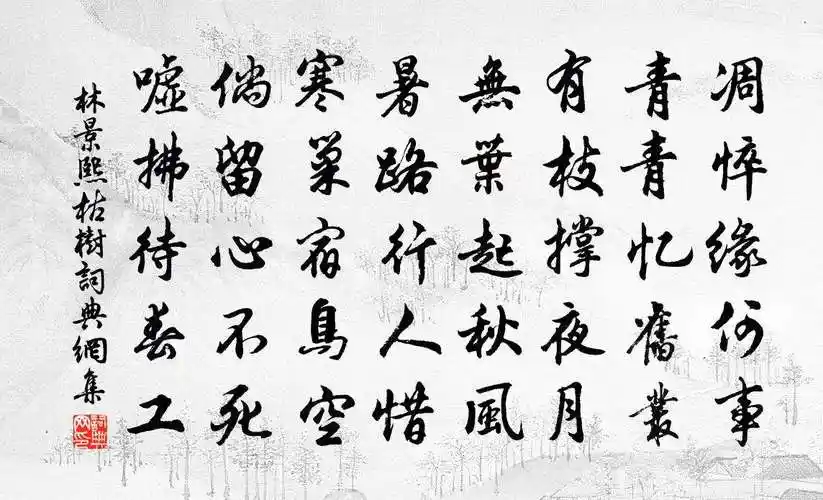 凋悴缘何事
青青忆旧丛
有枝撑夜月
無葉起秋風
暑路行人惜
寒巢宿鳥空
倘留心不死
嘘拂待春工
林景熙枯樹詞典網集